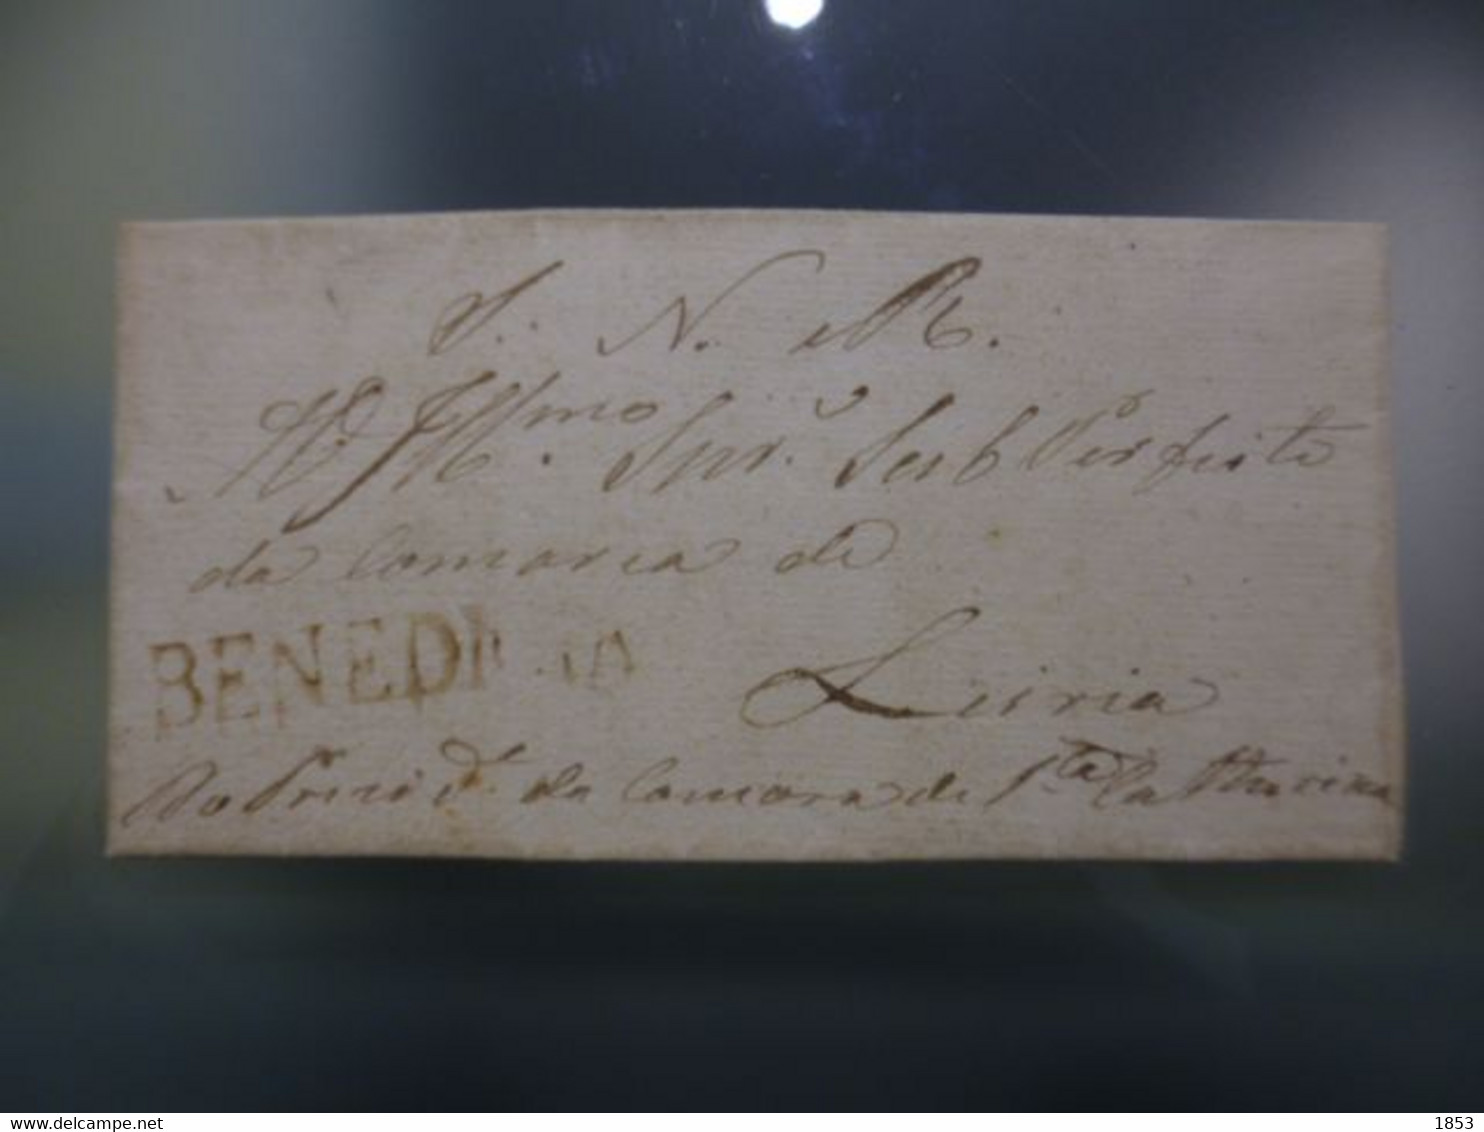 S. N. R.
Illmo. Snr. Sub Perfeito
da Comarca de
BENEDI
Leiria
Do Prezid.e da Camara de S.ta Catharina
delcampe.net
1853